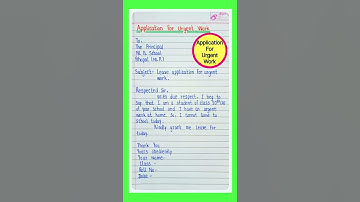 Application For Urgent Work
To,
The Principal
M. P. School
Bhopal (M.P.)
Subject:- Leave application for urgent
work.
Respected Sir,
With due respect, I beg to
say that I am a student of class
of your school and I have an urgent
work at home. So, I cannot
school today.
Kindly grant me leave for
today.
Thank You
Yours obediently
Your Name-
Class -
Roll No-
Date -
Application
For
Urgent
Work